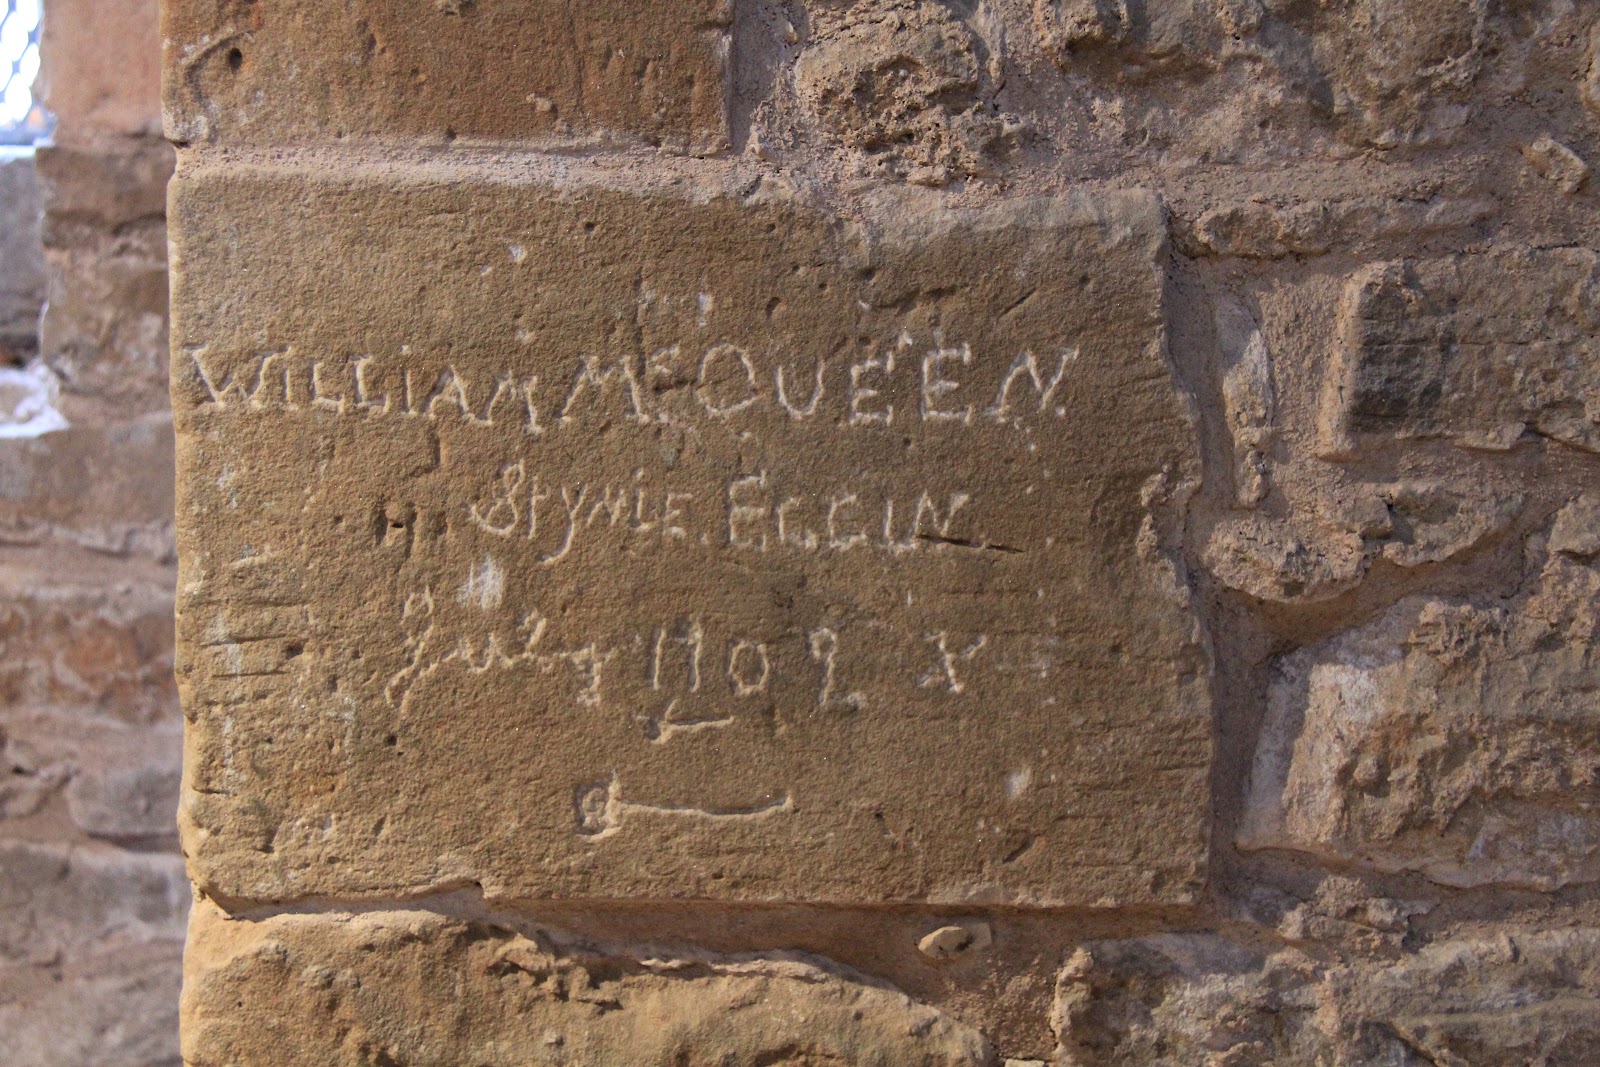 WILLIAM McQUEEN
Stynie ELGIN
July 1902